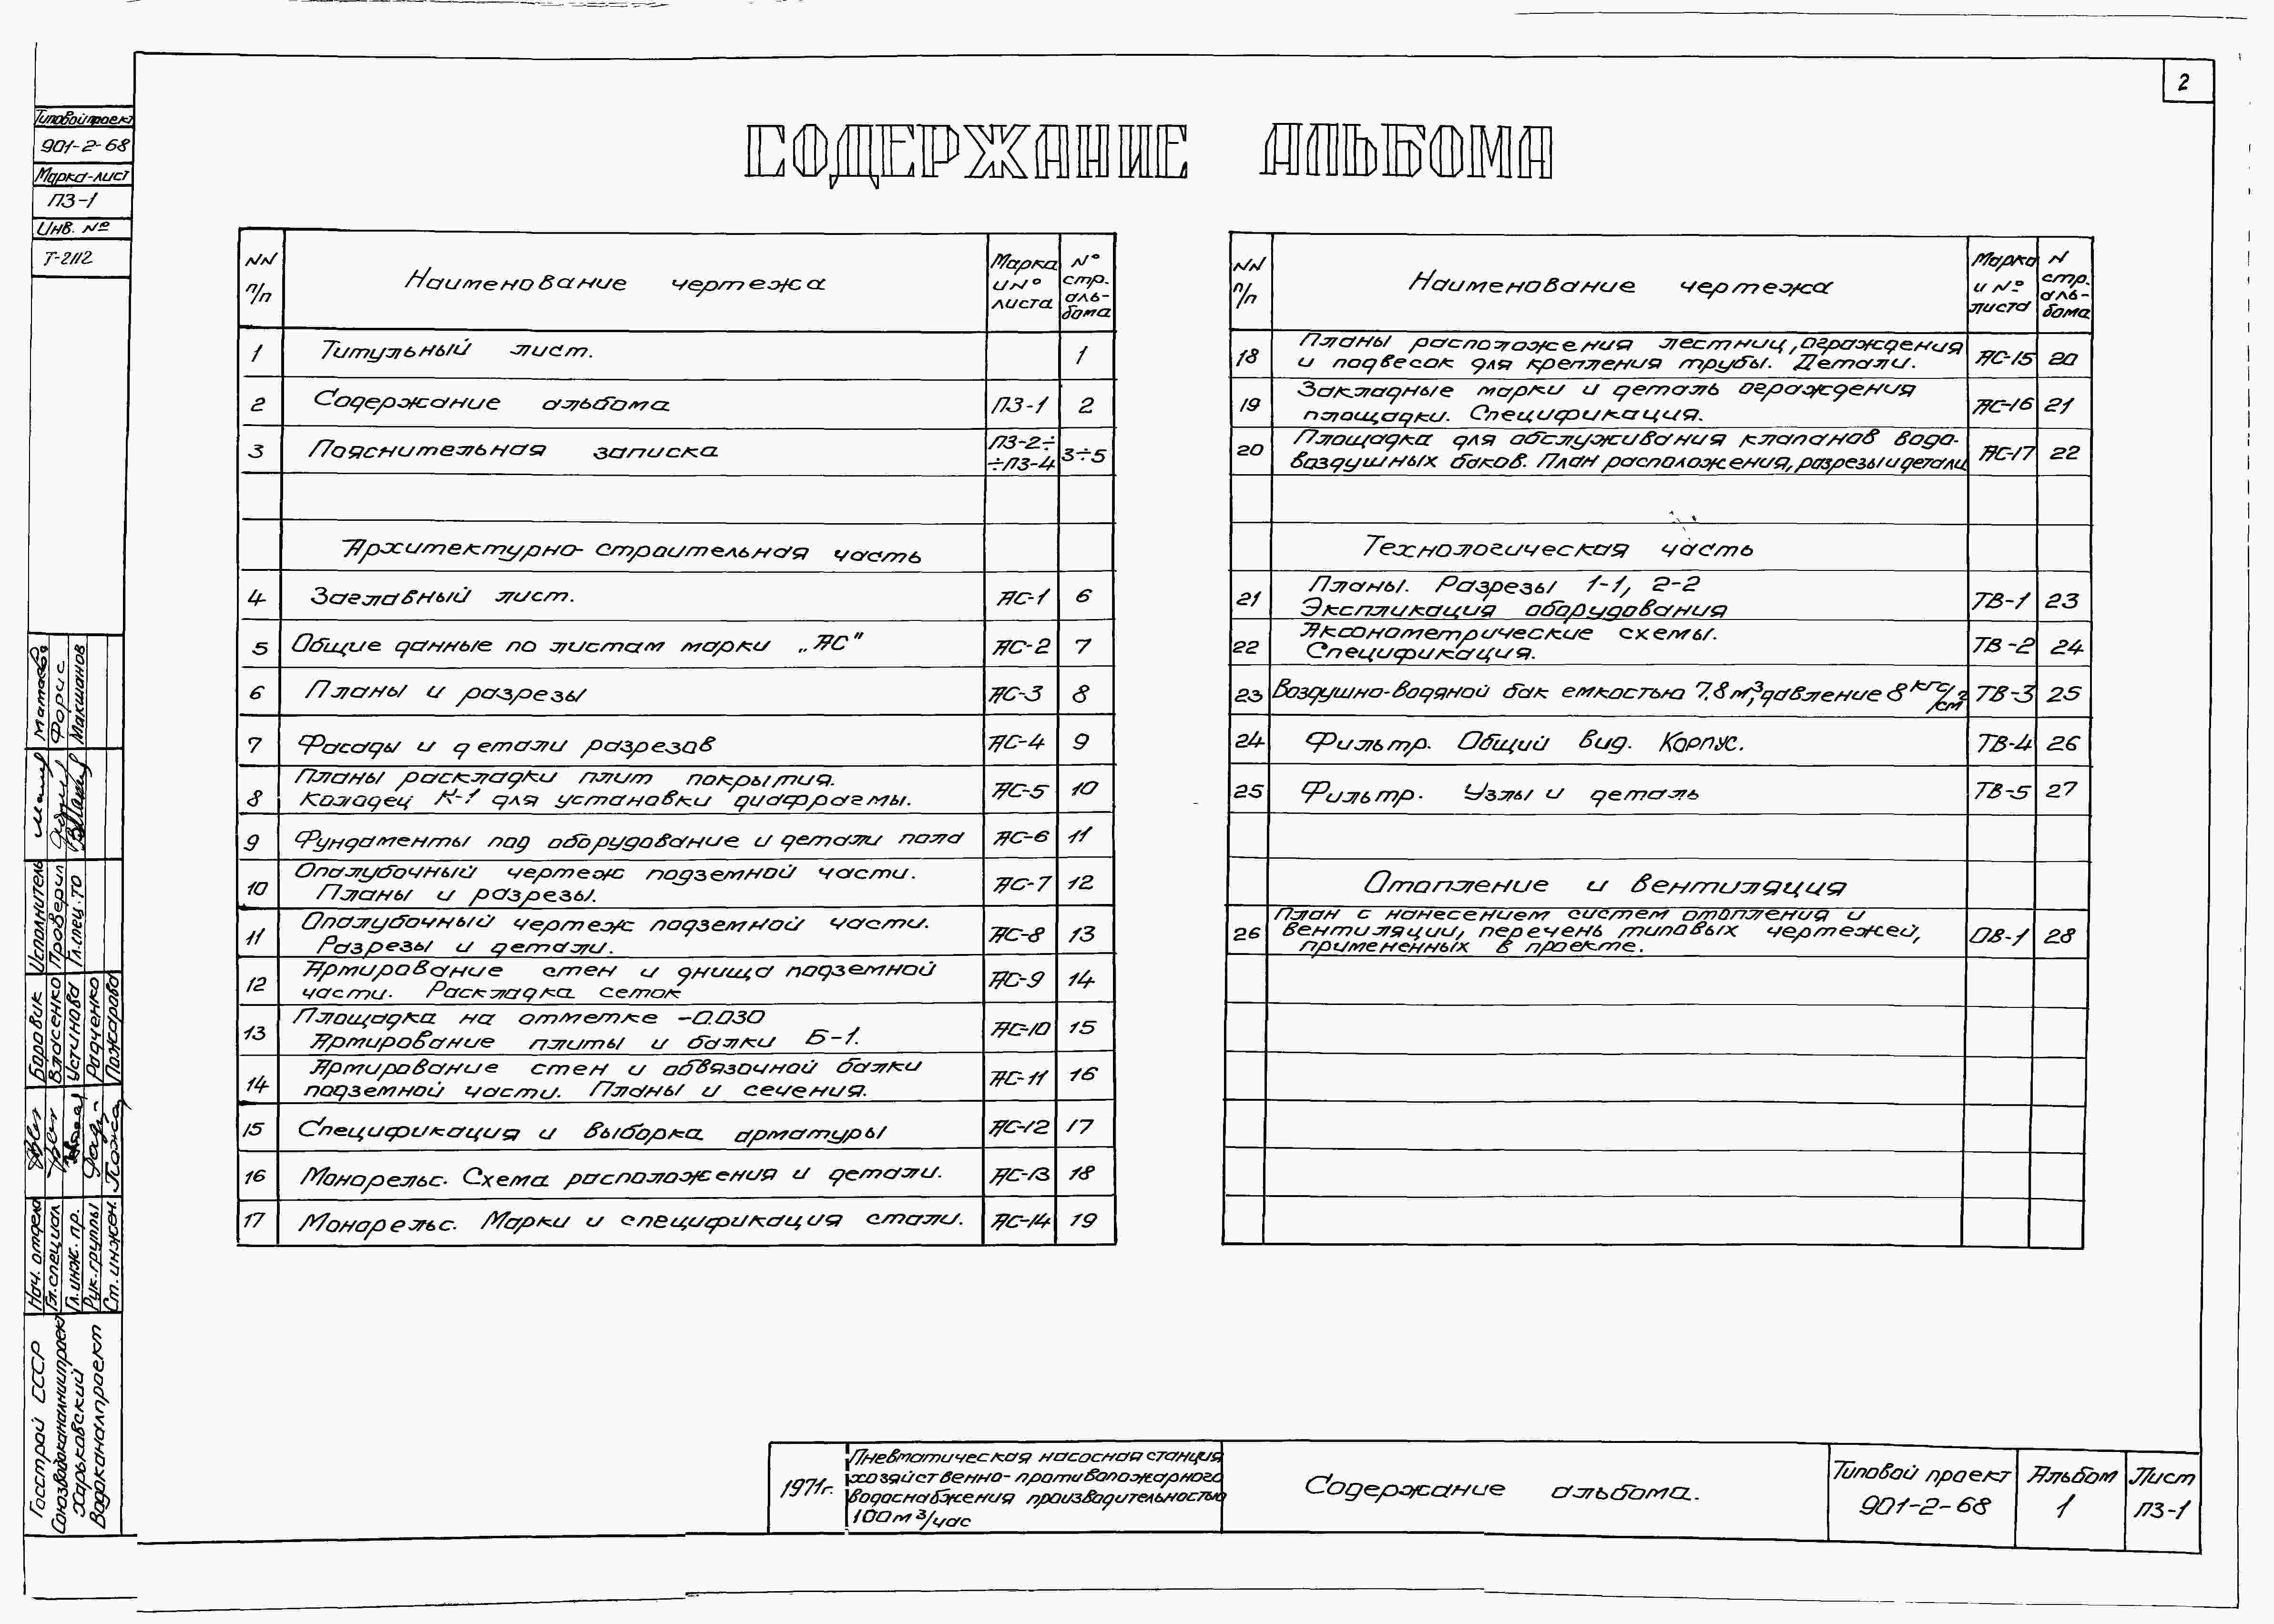 2
Типовой проект
901-2-68
Марка-лист
ПЗ-1
Инв. №
Т-2112
СОДЕРЖАНИЕ АЛЬБОМА
NN п/п Наименование чертежа Марка и № листа № стр. аль-бома
1 Титульный лист. 1
2 Содержание альбома ПЗ-1 2
3 Пояснительная записка ПЗ-2÷ ÷ПЗ-4 3÷5
Архитектурно-строительная часть
4 Заглавный лист. АС-1 6
5 Общие данные по листам марки „АС" АС-2 7
6 Планы и разрезы АС-3 8
7 Фасады и детали разрезов АС-4 9
8 Планы раскладки плит покрытия.
Колодец К-1 для установки диафрагмы. АС-5 10
9 Фундаменты под оборудование и детали пола АС-6 11
10 Опалубочный чертеж подземной части.
Планы и разрезы. АС-7 12
11 Опалубочный чертеж подземной части.
Разрезы и детали. АС-8 13
12 Армирование стен и днища подземной
части. Раскладка сеток АС-9 14
13 Площадка на отметке -0.030
Армирование плиты и балки Б-1. АС-10 15
14 Армирование стен и обвязочной балки
подземной части. Планы и сечения. АС-11 16
15 Спецификация и выборка арматуры АС-12 17
16 Монорельс. Схема расположения и детали. АС-13 18
17 Монорельс. Марки и спецификация стали. АС-14 19
NN п/п Наименование чертежа Марка и № листа N стр. аль-бома
18 Планы расположения лестниц, ограждения
и подвесок для крепления трубы. Детали. АС-15 20
19 Закладные марки и деталь ограждения
площадки. Спецификация. АС-16 21
20 Площадка для обслуживания клапанов водо-
воздушных баков. План расположения, разрезы и детали АС-17 22
Технологическая часть
21 Планы. Разрезы 1-1, 2-2
Экспликация оборудования ТВ-1 23
22 Аксонометрические схемы.
Спецификация. ТВ-2 24
23 Воздушно-водяной бак емкостью 7.8 м³, давление 8 кгс/см² ТВ-3 25
24 Фильтр. Общий вид. Корпус. ТВ-4 26
25 Фильтр. Узлы и деталь ТВ-5 27
Отопление и вентиляция
26 План с нанесением систем отопления и
вентиляции, перечень типовых чертежей,
примененных в проекте. ОВ-1 28
Исполнитель
Проверил Форис
Гл. спец. ТО Макшанов
Нач. отдела Боровик
Гл. специал Власенко
Гл. инж. пр. Устинова
Рук. группы Радченко
Ст. инжен. Пожарова
Госстрой СССР
Союзводоканалниипроект
Харьковский
Водоканалпроект
1971г.
Пневматическая насосная станция
хозяйственно-противопожарного
водоснабжения производительностью
100 м³/час
Содержание альбома.
Типовой проект
901-2-68
Альбом
1
Лист
ПЗ-1